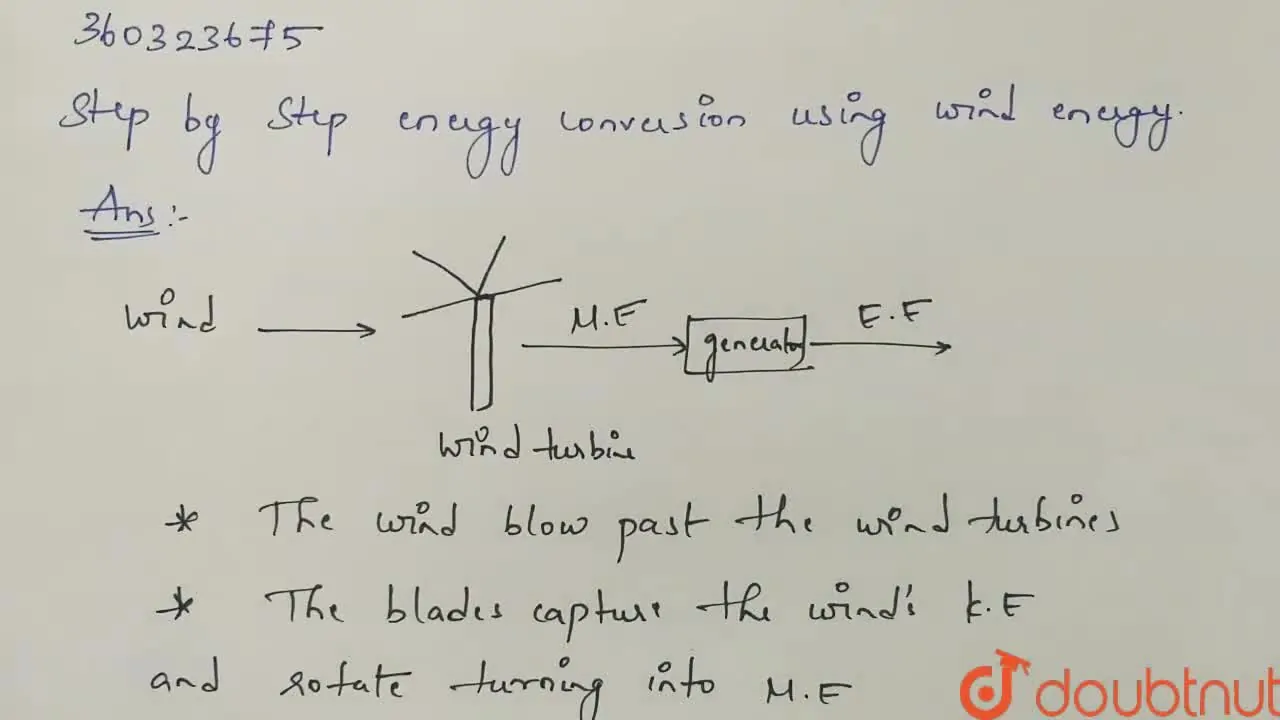 360323675
Step by Step energy conversion using wind energy.
Ans:-
wind
M.E
generator
E.E
wind turbine
* The wind blow past the wind turbines
* The blades capture the wind's K.E
and rotate turning into M.E
doubtnut